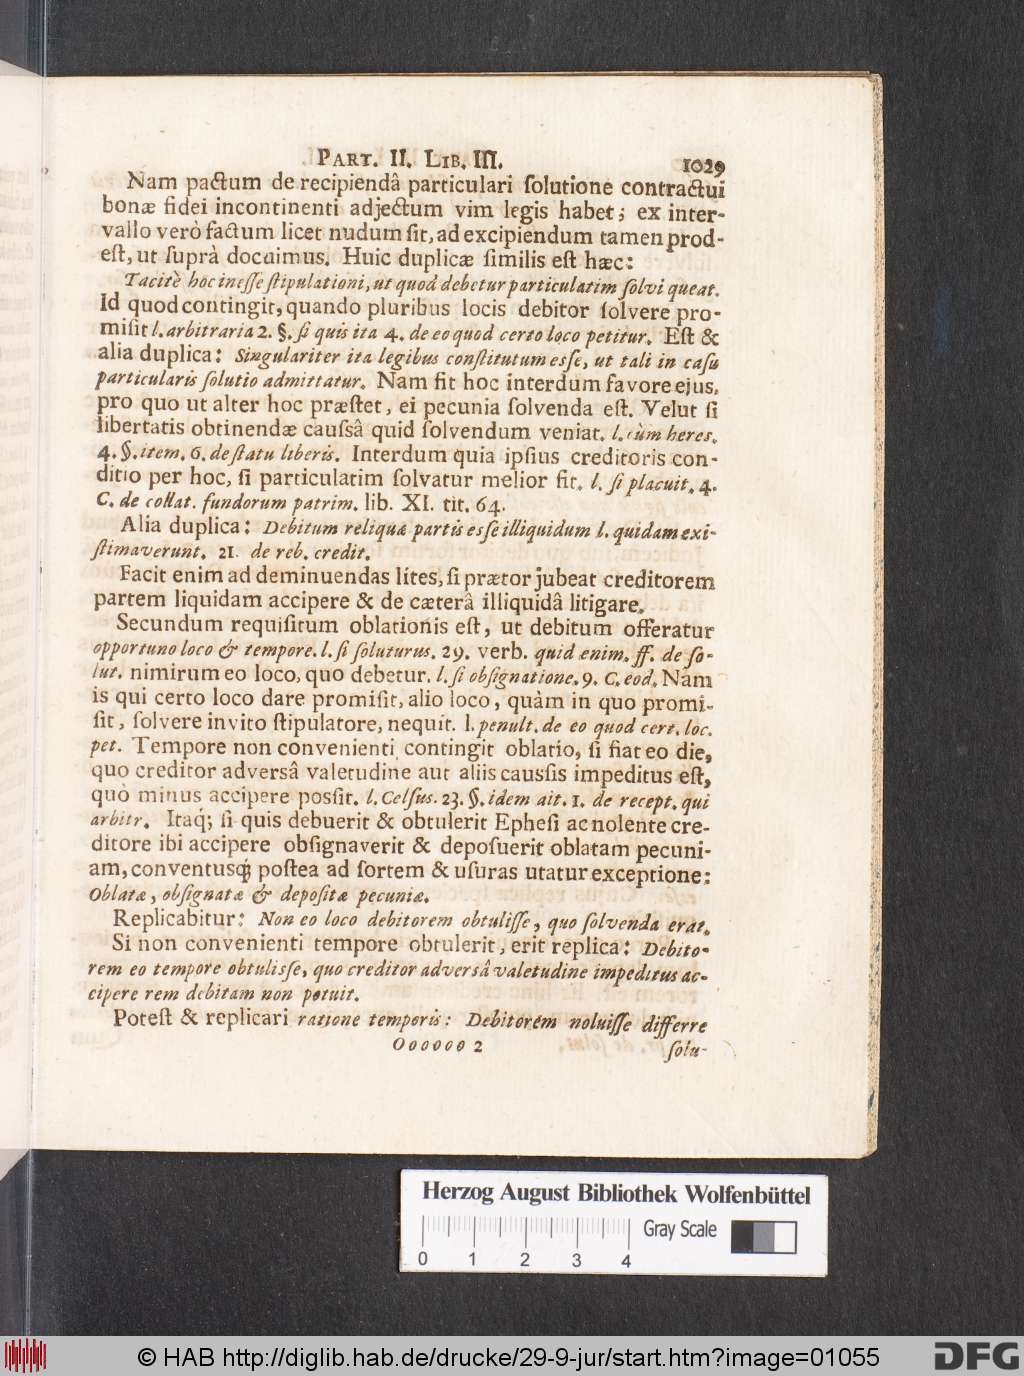 PART. II. LIB. III. 1029
Nam pactum de recipiendâ particulari ſolutione contractui
bonæ fidei incontinenti adjectum vim legis habet; ex inter-
vallo verò factum licet nudum ſit, ad excipiendum tamen prod-
eſt, ut ſuprà docuimus. Huic duplicæ ſimilis eſt hæc:
Tacitè hoc ineſſe ſtipulationi, ut quod debetur particulatim ſolvi queat.
Id quod contingit, quando pluribus locis debitor ſolvere pro-
miſit l. arbitraria 2. §. ſi quis ita 4. de eo quod certo loco petitur. Eſt &
alia duplica: Singulariter ita legibus conſtitutum esſe, ut tali in caſu
particularis ſolutio admittatur. Nam fit hoc interdum favore ejus,
pro quo ut alter hoc præſtet, ei pecunia ſolvenda eſt. Velut ſi
libertatis obtinendæ cauſsâ quid ſolvendum veniat. l. cùm heres.
4. §. item. 6. de ſtatu liberis. Interdum quia ipſius creditoris con-
ditio per hoc, ſi particulatim ſolvatur melior fit. l. ſi placuit. 4.
C. de collat. fundorum patrim. lib. XI. tit. 64.
Alia duplica: Debitum reliquæ partis esſe illiquidum l. quidam exi-
ſtimaverunt. 21. de reb. credit.
Facit enim ad deminuendas lites, ſi prætor jubeat creditorem
partem liquidam accipere & de cæterâ illiquidâ litigare.
Secundum requiſitum oblationis eſt, ut debitum offeratur
opportuno loco & tempore. l. ſi ſoluturus. 29. verb. quid enim. ff. de ſo-
lut. nimirum eo loco, quo debetur. l. ſi obſignatione. 9. C. eod. Nam
is qui certo loco dare promiſit, alio loco, quàm in quo promi-
ſit, ſolvere invito ſtipulatore, nequit. l. penult. de eo quod cert. loc.
pet. Tempore non convenienti contingit oblatio, ſi fiat eo die,
quo creditor adversâ valetudine aut aliis cauſsis impeditus eſt,
quò minus accipere poſſit. l. Celſus. 23. §. idem ait. 1. de recept. qui
arbitr. Itaq́; ſi quis debuerit & obtulerit Epheſi ac nolente cre-
ditore ibi accipere obſignaverit & depoſuerit oblatam pecuni-
am, conventusq́; poſtea ad ſortem & uſuras utatur exceptione:
Oblatæ, obſignatæ & depoſitæ pecuniæ.
Replicabitur: Non eo loco debitorem obtuliſſe, quo ſolvenda erat.
Si non convenienti tempore obtulerit, erit replica: Debito-
rem eo tempore obtulisſe, quo creditor adversâ valetudine impeditus ac-
cipere rem debitam non potuit.
Poteſt & replicari ratione temporis: Debitorem noluiſſe differre
Oooooo 2 ſolu-
Herzog August Bibliothek Wolfenbüttel
Gray Scale
0 1 2 3 4
© HAB http://diglib.hab.de/drucke/29-9-jur/start.htm?image=01055
DFG